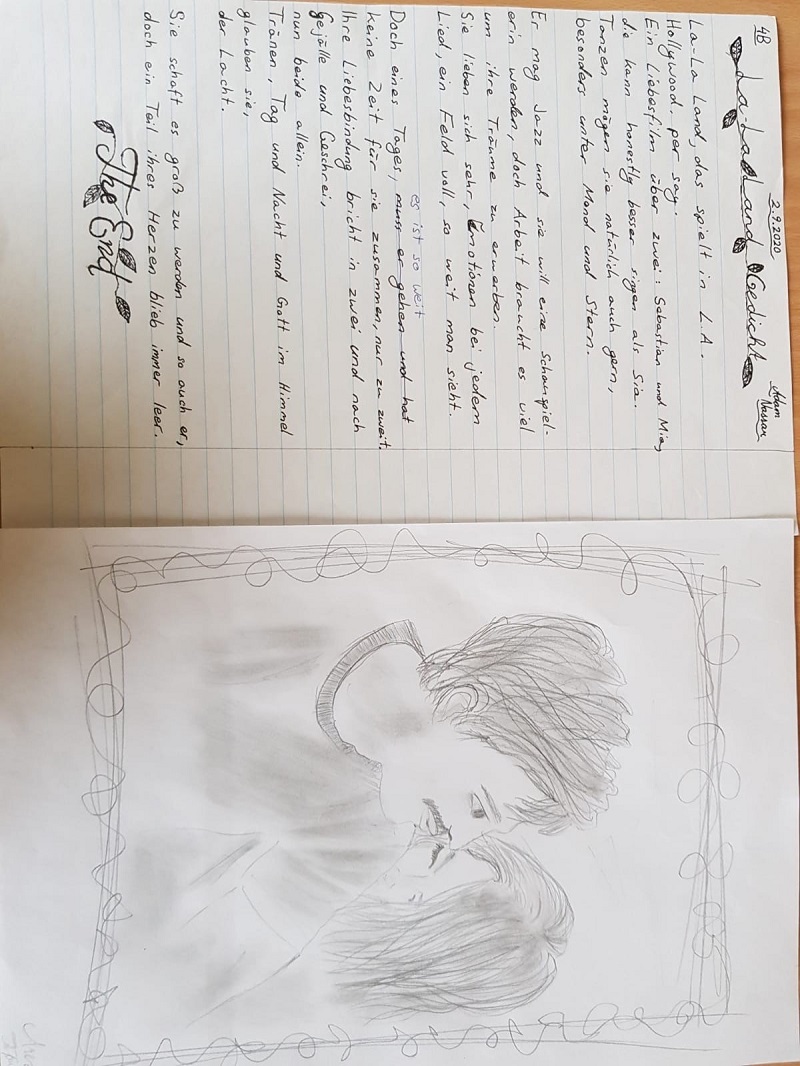 4B
2.9.2020
Adam
Nassar
La-La Land Gedicht
La-La Land, das spielt in L.A.
Hollywood. per say.
Ein Liebesfilm über zwei: Sebastian und Mia,
die kann honestly besser singen als Sia.
Tanzen mögen sie natürlich auch gern,
besonders unter Mond und Stern.
Er mag Jazz und sie will eine Schauspiel-
erin werden, doch Arbeit braucht es viel
um ihre Träume zu erwerben.
Sie lieben sich sehr, Emotionen bei jedem
Lied, ein Feld voll, so weit man sieht.
es ist so weit
Doch eines Tages, muss er gehen und hat
keine Zeit für sie zusammen, nur zu zweit.
Ihre Liebesbindung bricht in zwei und nach
Gejalle und Geschrei,
nun beide allein.
Tränen, Tag und Nacht und Gott im Himmel
glauben sie,
der Lacht.
Sie schaft es groß zu werden und so auch er,
doch ein Teil ihres Herzen blieb immer leer.
The End